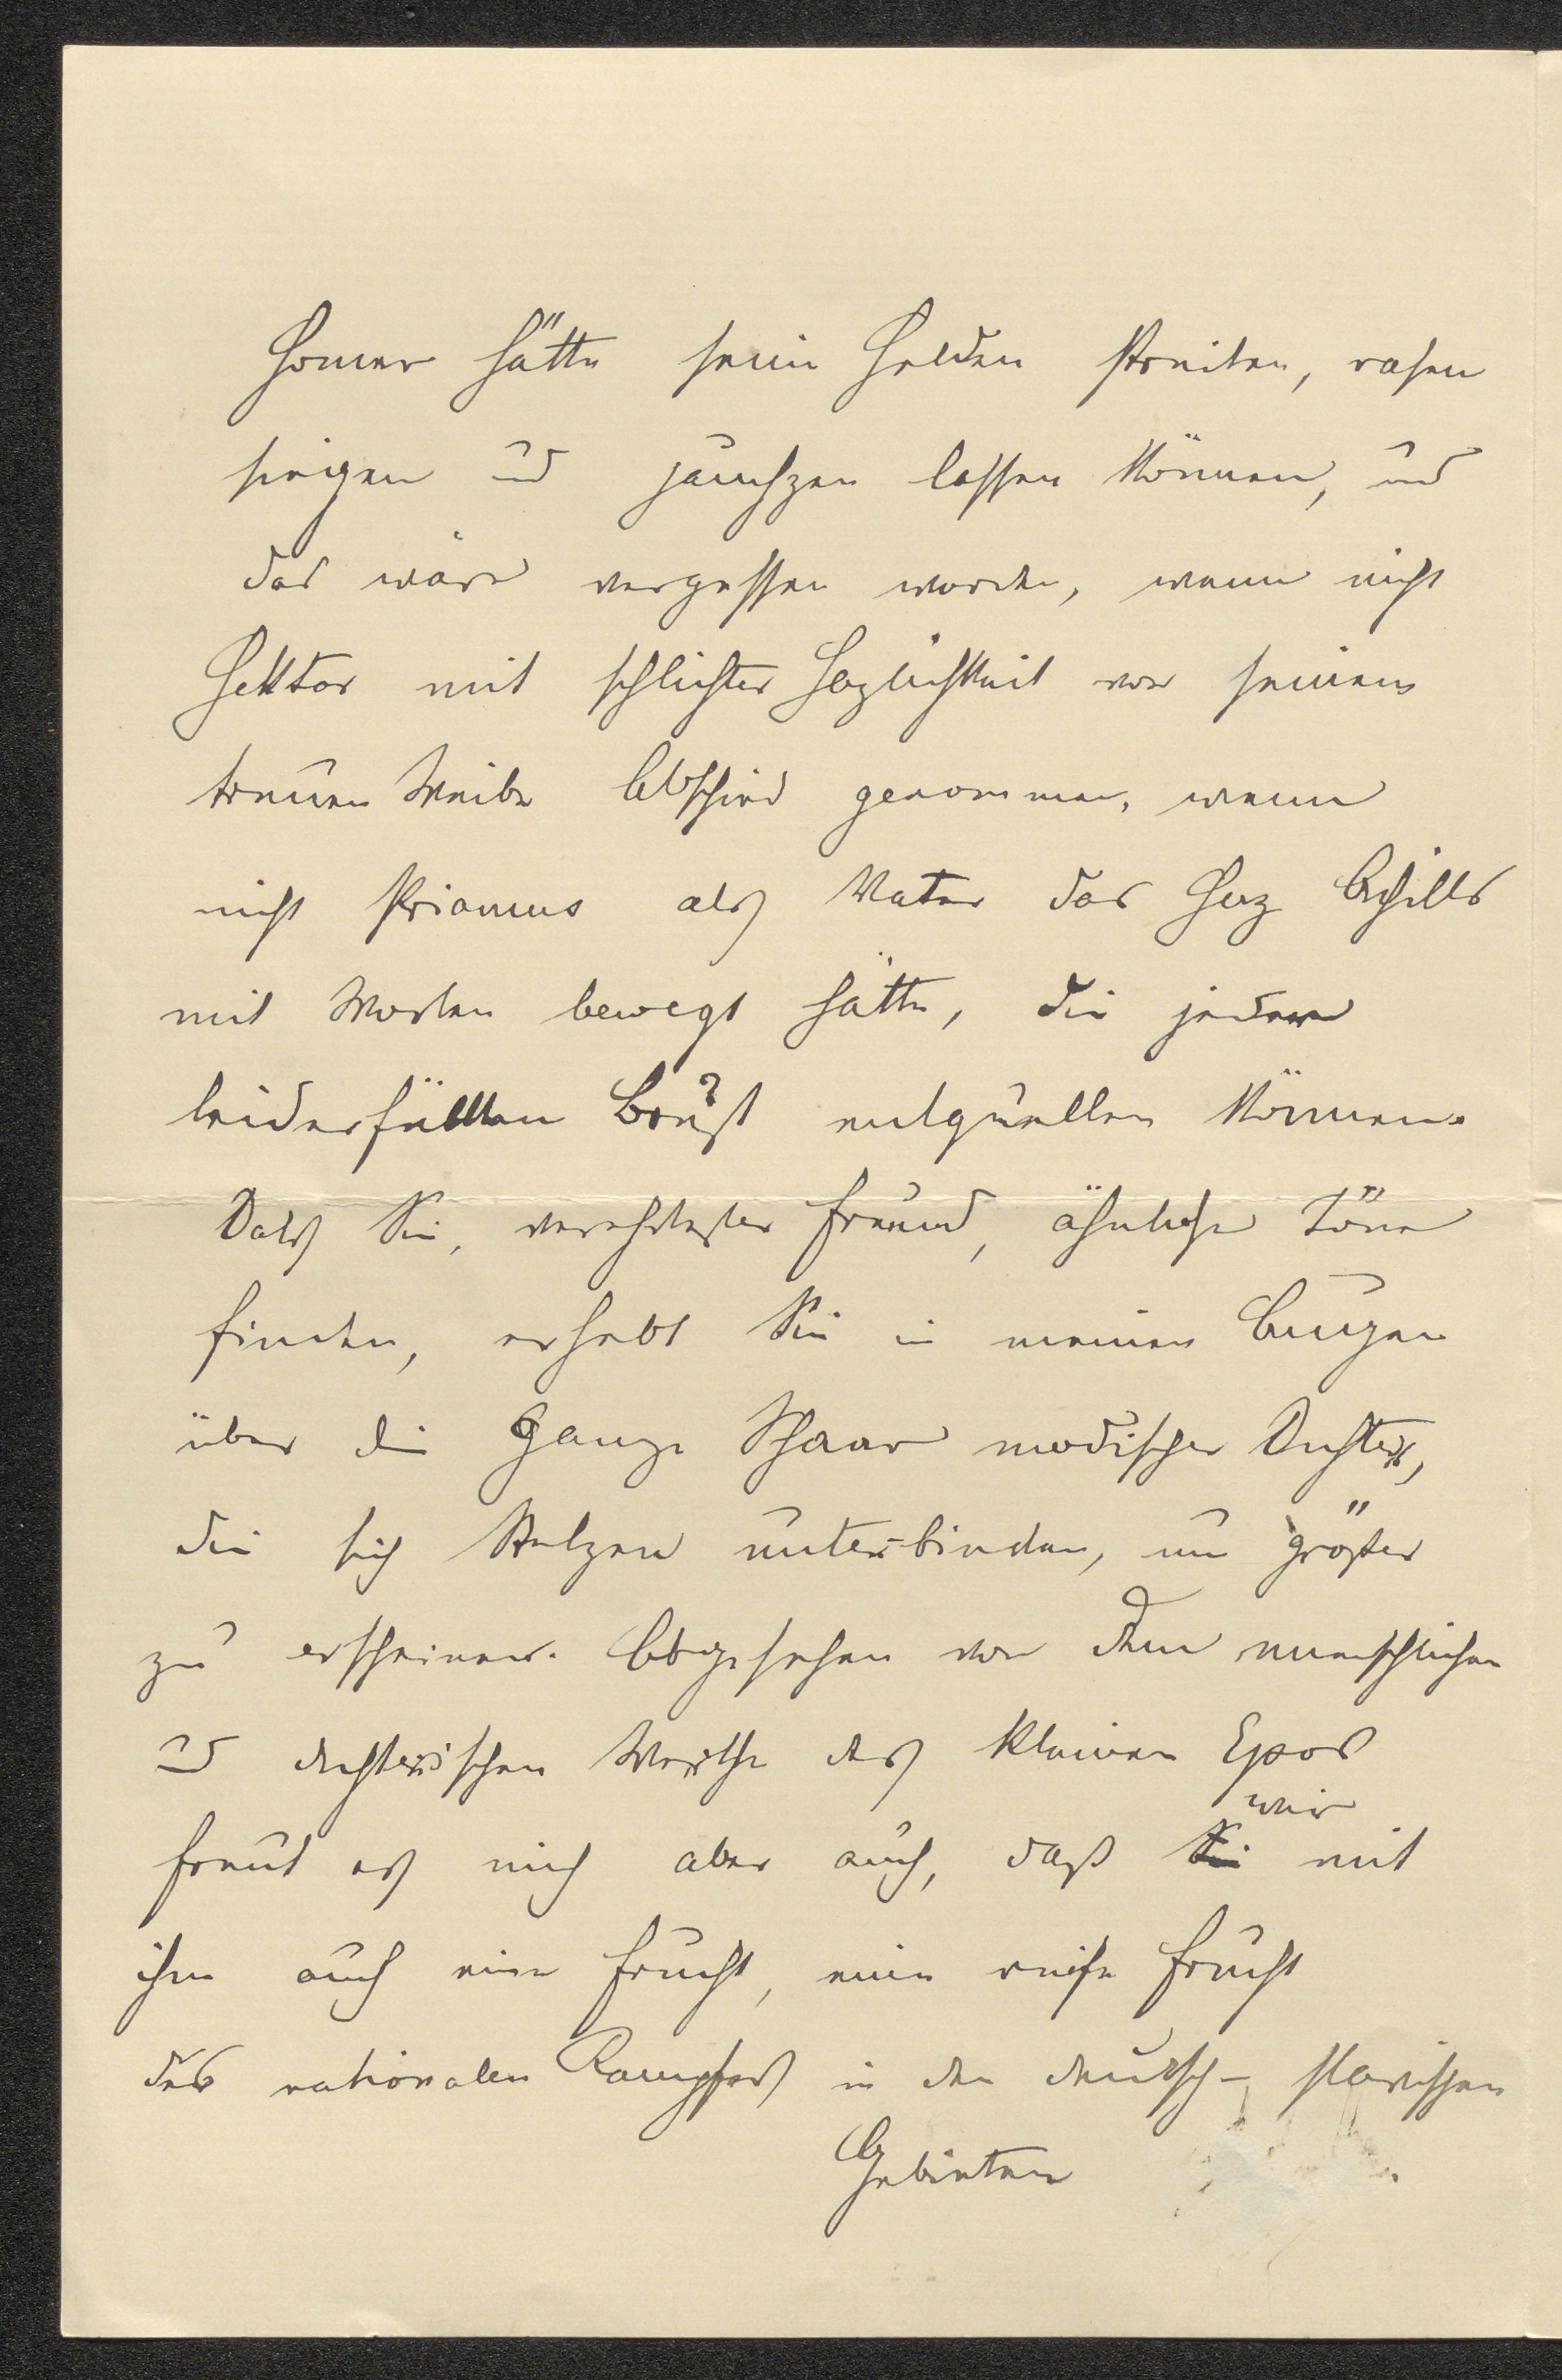 Homer hätte seine Helden streiten, rasen
siegen und jauchzen lassen können, und
das wäre vergessen worden, wenn nicht
Hektor mit schlichter Herzlichkeit von seinem
treuen Weibe Abschied genommen, wenn
nicht Priamus als Vater das Herz Achills
mit Worten bewegt hätte, die jeder
leiderfüllten Brust entquellen können.
Dass Sie, verehrtester Freund, ähnliche Töne
finden, erhebt Sie in meinen Augen
über die ganze Schaar modischer Dichter,
die sich Stelzen unterbinden, um größer
zu erscheinen. Abgesehen von dem menschlichen
und dichterischen Werthe des kleinen Epos
freut es mich aber auch, daß Sie wir mit
ihm auch eine Frucht, eine reife Frucht
des nationalen Kampfes in den deutsch-slavischen
Gebieten